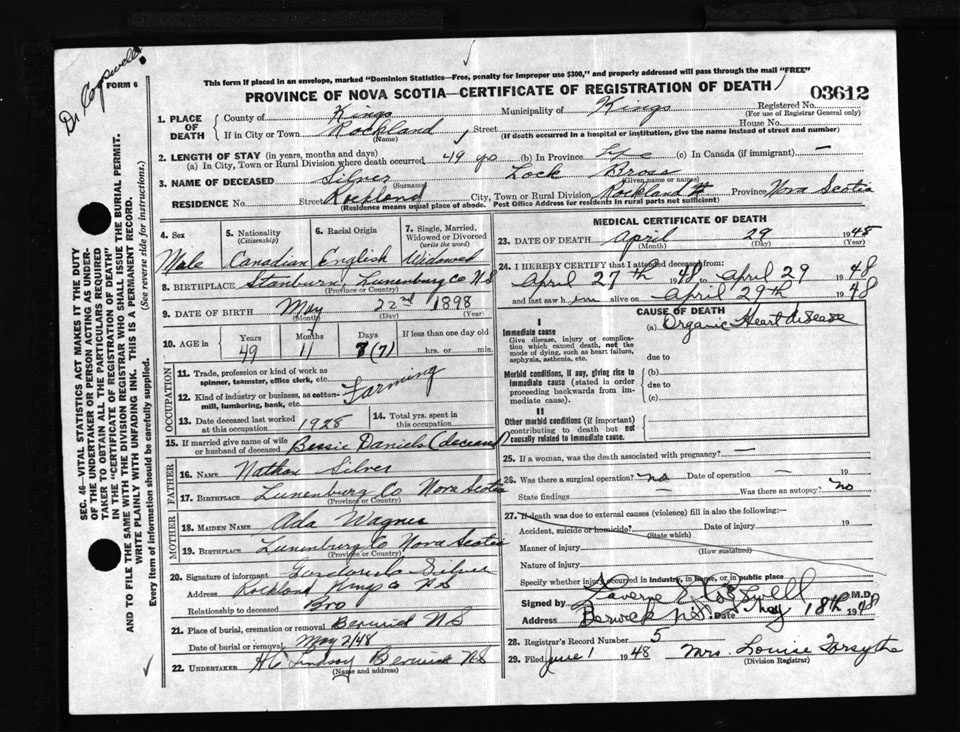 Dr Cogswell
FORM 6
This form if placed in an envelope, marked "Dominion Statistics—Free, penalty for improper use $300," and properly addressed will pass through the mail "FREE"
PROVINCE OF NOVA SCOTIA—CERTIFICATE OF REGISTRATION OF DEATH
03612
1. PLACE OF DEATH { County of Kings Municipality of Kings Registered No.
(For use of Registrar General only)
If in City or Town Rockland Street House No.
(Name) (If death occurred in a hospital or institution, give the name instead of street and number)
2. LENGTH OF STAY (in years, months and days)
(a) In City, Town or Rural Division where death occurred, 49 yrs (b) In Province Life (c) In Canada (if immigrant) —
3. NAME OF DECEASED Silver Lock Bross
(Surname) (Given name or names)
RESIDENCE No. Street Rockland City, Town or Rural Division Rockland Province Nova Scotia
(Residence means usual place of abode. Post Office Address for residents in rural parts not sufficient)
4. Sex 5. Nationality (Citizenship) 6. Racial Origin 7. Single, Married, Widowed or Divorced (write the word)
Male Canadian English Widowed
8. BIRTHPLACE Stanburn, Lunenburg Co NS
(Province or Country)
9. DATE OF BIRTH May 22nd 1898
(Month) (Day) (Year)
10. AGE in { Years Months Days If less than one day old
49 11 8 (7) hrs. or min.
OCCUPATION
11. Trade, profession or kind of work as spinner, teamster, office clerk, etc.
12. Kind of industry or business, as cotton-mill, lumbering, bank, etc. Farming
13. Date deceased last worked at this occupation 1928
14. Total yrs. spent in this occupation
15. If married give name of wife or husband of deceased Bessie Daniels (deceased)
FATHER
16. NAME Nathan Silver
17. BIRTHPLACE Lunenburg Co Nova Scotia
(Province or Country)
MOTHER
18. MAIDEN NAME Ada Wagner
19. BIRTHPLACE Lunenburg Co Nova Scotia
(Province or Country)
20. Signature of informant Silver
Address Rockland Kings Co NS
Relationship to deceased Bro
21. Place of burial, cremation or removal Berwick NS
Date of burial or removal May 2/48
22. UNDERTAKER Lindsay Berwick NS
(Name and address)
MEDICAL CERTIFICATE OF DEATH
23. DATE OF DEATH April 29 1948
(Month) (Day) (Year)
24. I HEREBY CERTIFY that I attended deceased from
April 27th 1948 to April 29 1948
and last saw him alive on April 29th 1948
CAUSE OF DEATH
I
Immediate cause
Give disease, injury or complication which caused death, not the mode of dying, such as heart failure, asphyxia, asthenia, etc.
(a) Organic Heart disease
due to
Morbid conditions, if any, giving rise to immediate cause (stated in order proceeding backwards from immediate cause).
(b)
due to
(c)
II
Other morbid conditions (if important) contributing to death but not causally related to immediate cause.
25. If a woman, was the death associated with pregnancy? —
26. Was there a surgical operation? no Date of operation — 19
State findings — Was there an autopsy? no
27. If death was due to external causes (violence) fill in also the following:—
Accident, suicide or homicide? Date of injury 19
(State which)
Manner of injury
(How sustained)
Nature of injury
Specify whether injury occurred in industry, in home, or in public place
Signed by Laverne E Cogswell M.D.
Address Berwick N.S. Date May 18th 1948
28. Registrar's Record Number 5
29. Filed June 1 1948 Mrs. Louise Forsythe
(Division Registrar)
SEC. 46—VITAL STATISTICS ACT MAKES IT THE DUTY
OF THE UNDERTAKER OR PERSON ACTING AS UNDER-
TAKER TO OBTAIN ALL THE PARTICULARS REQUIRED
IN THE "CERTIFICATE OF REGISTRATION OF DEATH"
AND TO FILE THE SAME WITH THE DIVISION REGISTRAR WHO SHALL ISSUE THE BURIAL PERMIT.
WRITE PLAINLY WITH UNFADING INK. THIS IS A PERMANENT RECORD.
Every item of information should be carefully supplied. (See reverse side for instructions.)